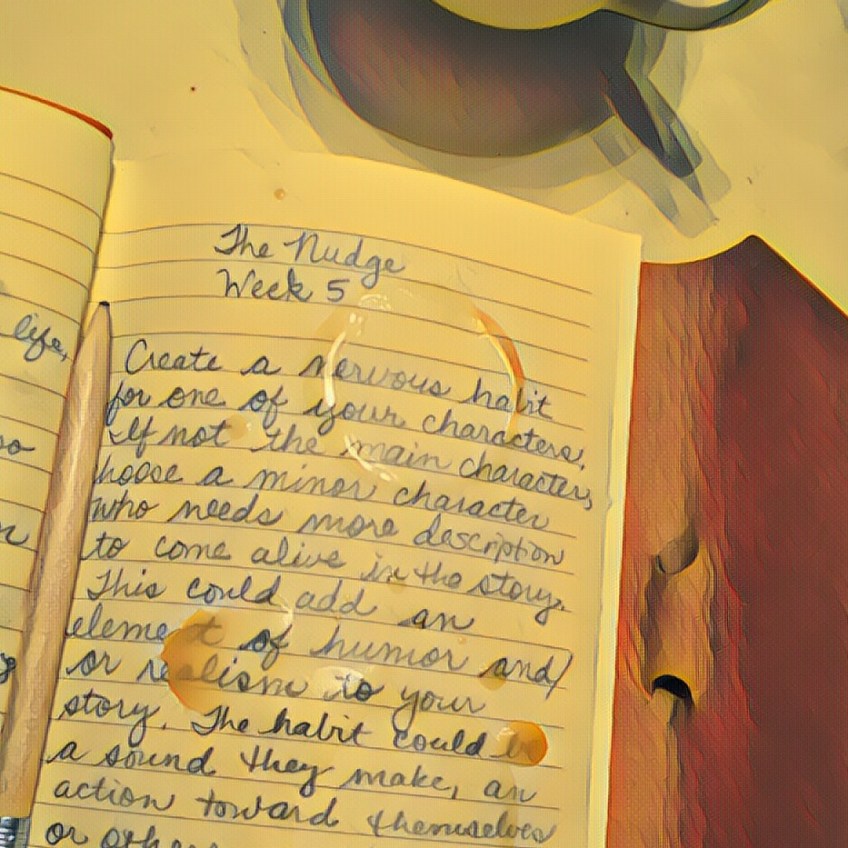 The Nudge
Week 5
Create a nervous habit
for one of your characters.
If not the main character,
choose a minor character
who needs more description
to come alive in the story.
This could add an
element of humor and/
or realism to your
story. The habit could be
a sound they make, an
action toward themselves
or others
life,